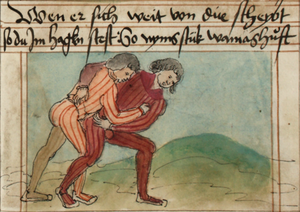 Wen er sich weit von dir scheybt
so du Im hagkn stest So nym stuk wamashuft